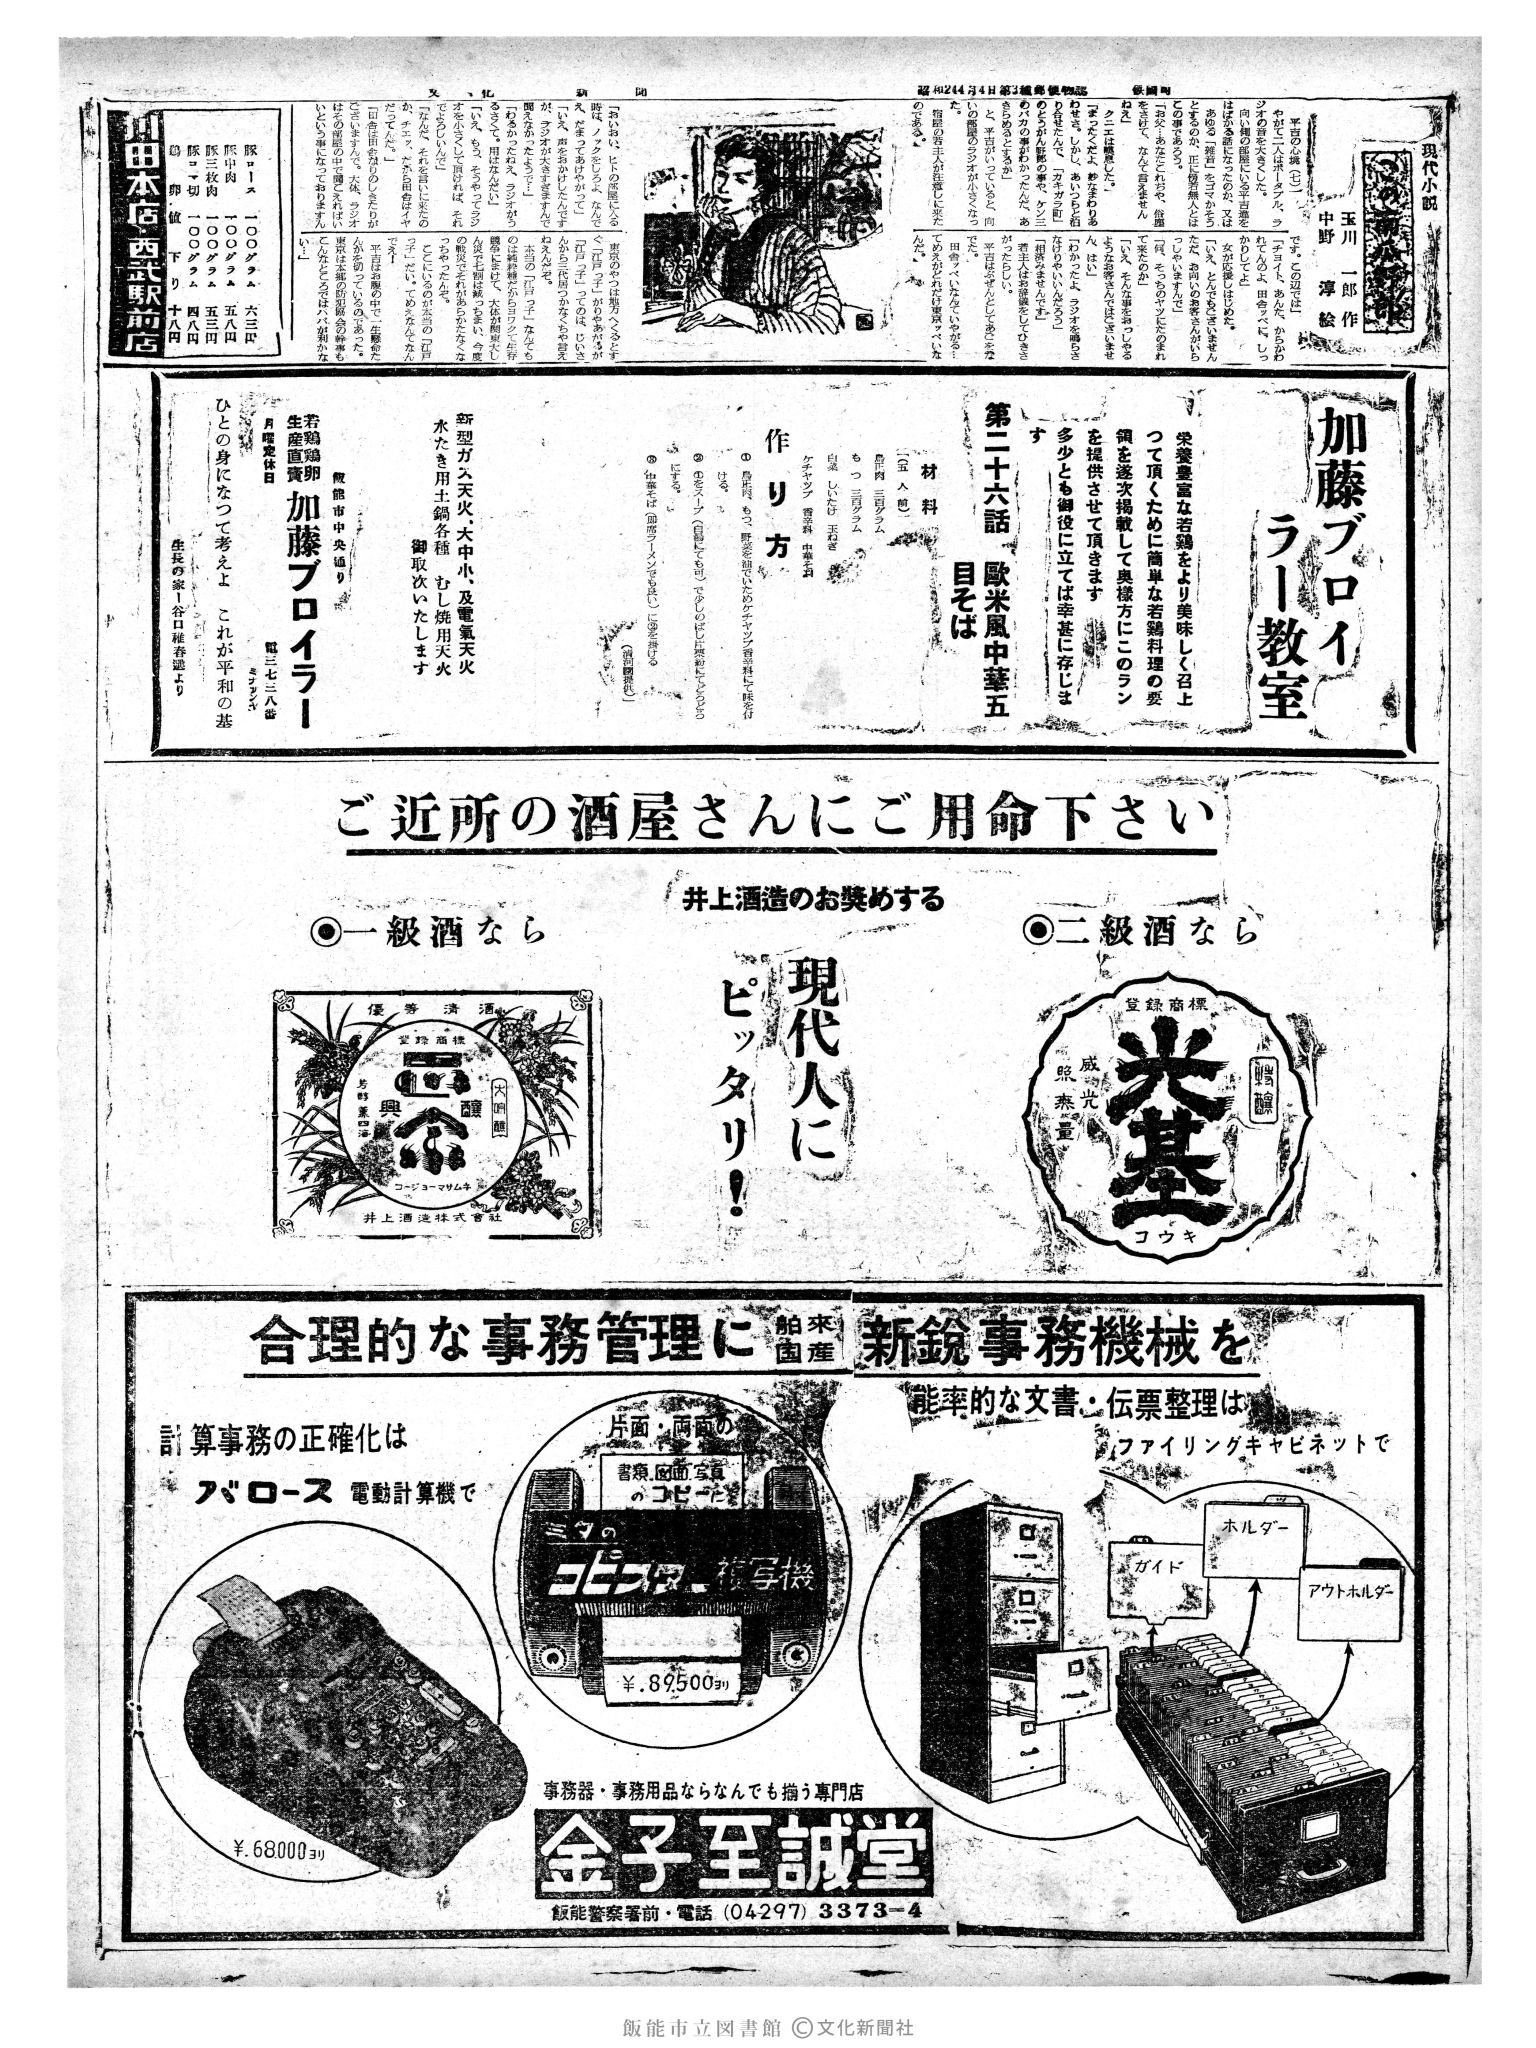 文化新聞
昭和24年4月4日第3種郵便物認
現代小説
玉川一郎 作
中野 淳 絵
平吉の心境(七)
やがて二人はポータブル、ラ
ジオの音を大きくした。
向い側の部屋にいる平吉達を
はばかる話になったのか、又は
あめる「雑音」をゴマかそう
とするのか、正に傍若無人とは
この事であろう。
「お父…あなたこれぢゃ、俗塵
をさけて、なんて言えません
ねえ」
クニエは嘆息した。
「まったくだよ、妙なまわりあ
わせさ。しかし、あいつらと泊
り合せたんで、「カキガラ町」
のとうがん野郎の事や、ケン三
のバカの事がわかったんだ、あ
きらめるとするか」
と、平吉がいっていると、向
いの部屋のラジオが小さくなっ
た。
宿屋の若主人が注意しに来た
のである。
です。この辺では」
「チョイト、あんた、からかわ
れてんのよ、田舎ッペに。しっ
かりしてよ」
女が応援しはじめた。
「いえ、とんでもございません
ただ、お向いのお客さんがいら
っしゃいますんで」
「何、そっちのヤツにたのまれ
て来たのか」
「いえ、そんな事をおっしゃる
ようなお客さんではございませ
ん、はい」
「わかったよ、ラジオを鳴らさ
なけりゃいいんだろう」
「相済みませんです」
若主人はお辞儀をしてひきさ
がったらしい。
平吉はぶぜんとしてあごをな
でた。
田舎ッペいなんていやがる…
てめえがどれだけ東京ッペいな
んだ。
「おいおい、ヒトの部屋に入る
時は、ノックをしろよ、なんで
え、だまってあけやがって」
「いえ、声をおかけしたんです
が、ラジオが大きすぎますんで
聞えなかったようで…」
「わるかったねえ、ラジオがう
るさくて。用はなんだい」
「いえ、もう、そうやってラジ
オを小さくして頂ければ、それ
でよろしいんで」
「なんだ、それを言いに来たの
か、チェッ、だから田舎はイヤ
だってんだ。」
「田舎は田舎なりのしきたりが
ございますんで、大体、ラジオ
はその部屋の中で聞こえればい
いという事になっておりますん
東京のやつは地方へくるとす
ぐ「江戸っ子」がりやあがるが
「江戸っ子」ってのは、じいさ
んから三代居つかなくちゃ言え
ねえんだぞ。
本当の「江戸っ子」なんても
のは純粋種だからヨワクて生存
競争にまけて、大体が関東大し
ん災で七割は減っちまい、今度
の戦災でそれがあらかたなくな
っちゃったんぞ。
ここにいるのが本当の「江戸
っ子」だい。てめえなんてなん
でえ!
平吉はお腹の中で一生懸命た
んかを切っているのであった。
東京は本郷の防犯協会の幹事も
こんなところではバヘが利かな
い!
豚ロース 一〇〇グラム 六三円
豚中肉 一〇〇グラム 五八円
豚三枚肉 一〇〇グラム 五三円
豚コマ切 一〇〇グラム 四八円
鶏卵・値下り 十八円
本店 西武駅前店
加藤ブロイラー教室
栄養豊富な若鶏をより美味しく召上
つて頂くために簡単な若鶏料理の要
領を遂次掲載して奥様方にこのラン
を提供させて頂きます
多少とも御役に立てば幸甚に存じま
す
第二十六話 欧米風中華五
目そば
材料
(五人前)
鳥正肉 三百グラム
もつ 三百グラム
白菜 しいたけ 玉ねぎ
ケチャップ 香辛料 中華そば
作り方
① 鳥正肉、もつ、野菜を油でいためケチャップ香辛料にて味を付
ける。
② ①をスープ(白湯にても可)で少しのばし片栗粉にてとろとろ
にする。
③ 中華そば(即席ラーメンでも良い)に②を掛ける
(清河園提供)
新型ガス天火、大中小、及電気天火
水たき用土鍋各種 むし焼用天火
御取次いたします
飯能市中央通り
若鶏鶏卵
生産直賣
加藤ブロイラー
月曜定休日
電三七二八番
ミナツシヤ
ひとの身になつて考えよ これが平和の基
生長の家ー谷口雅春選より
ご近所の酒屋さんにご用命下さい
井上酒造のお奨めする
◉二級酒なら
登録商標
特醸
光基
威光
照無量
コウキ
現代人に
ピッタリ!
◉一級酒なら
優等清酒
登録商標
大吟醸
醸
興
正宗
コージョーマサムネ
井上酒造株式會社
合理的な事務管理に 舶来 国産 新鋭事務機械を
計算事務の正確化は
バロース 電動計算機で
¥.68000ヨリ
片面・両面の
書類.図面.写真
のコピーに
ミタの
コピスター 複写機
¥.89500ヨリ
能率的な文書・伝票整理は
ファイリングキャビネットで
ガイド
ホルダー
アウトホルダー
事務器・事務用品ならなんでも揃う専門店
金子至誠堂
飯能警察署前・電話(04297)3373-4
飯能市立図書館 ©文化新聞社